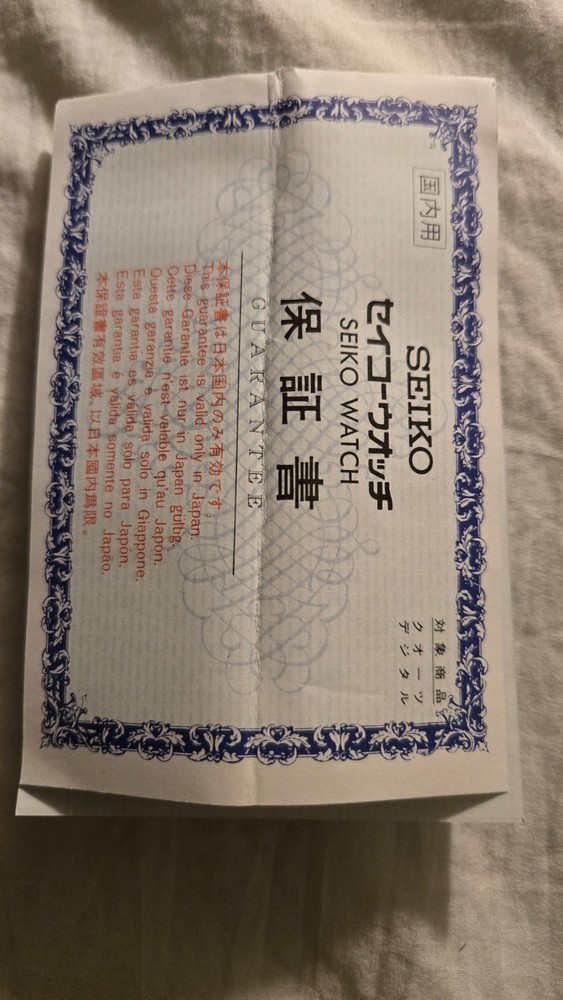 国内用
SEIKO
セイコーウオッチ
SEIKO WATCH
保証書
GUARANTEE
対象商品
クオーツ
デジタル
本保証書は日本国内のみ有効です。
This guarantee is valid only in Japan.
Diese Garantie ist nur in Japan gültig.
Cette garantie n'est valable qu'au Japon.
Questa garanzia è valida solo in Giappone.
Esta garantía es válida sólo para Japón.
Esta garantia é valida somente no Japão.
本保證書有效區域，以日本國內爲限。